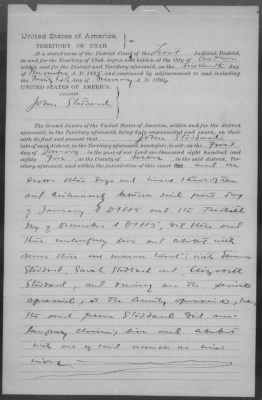 United States of America.
TERRITORY OF UTAH. } ss.
At a stated term of the District Court of the First Judicial District,
in and for the Territory of Utah, begun and holden at the City of
within and for the District and Territory aforesaid, on the day
of November A. D. 1885 and continued by adjournment to and including
the day of A. D. 1886
UNITED STATES OF AMERICA.
AGAINST
John Stoddard
The Grand Jurors of the United States of America, within and for the district
aforesaid, in the Territory aforesaid, being duly empanneled and sworn, on their
oath do find and present that John Stoddard
late of said district, in the Territory aforesaid, heretofore, to wit: on the first
day of January in the year of our Lord one thousand eight hundred and
eighty five at the County of in the said district, Territory
aforesaid and within the jurisdiction of this court and on
divers other days and times thereafter
and continuously between said first day
of January A D 1885 and the
day of December A D 1885, did then and
there unlawfully live and cohabit with
more than one woman towit: with
Stoddard, Sarah Stoddard and Elizabeth
Stoddard, and during all the period
aforesaid, at the County aforesaid, he
the said Stoddard did un-
lawfully claim, live and cohabit
with all of said women as his
wives